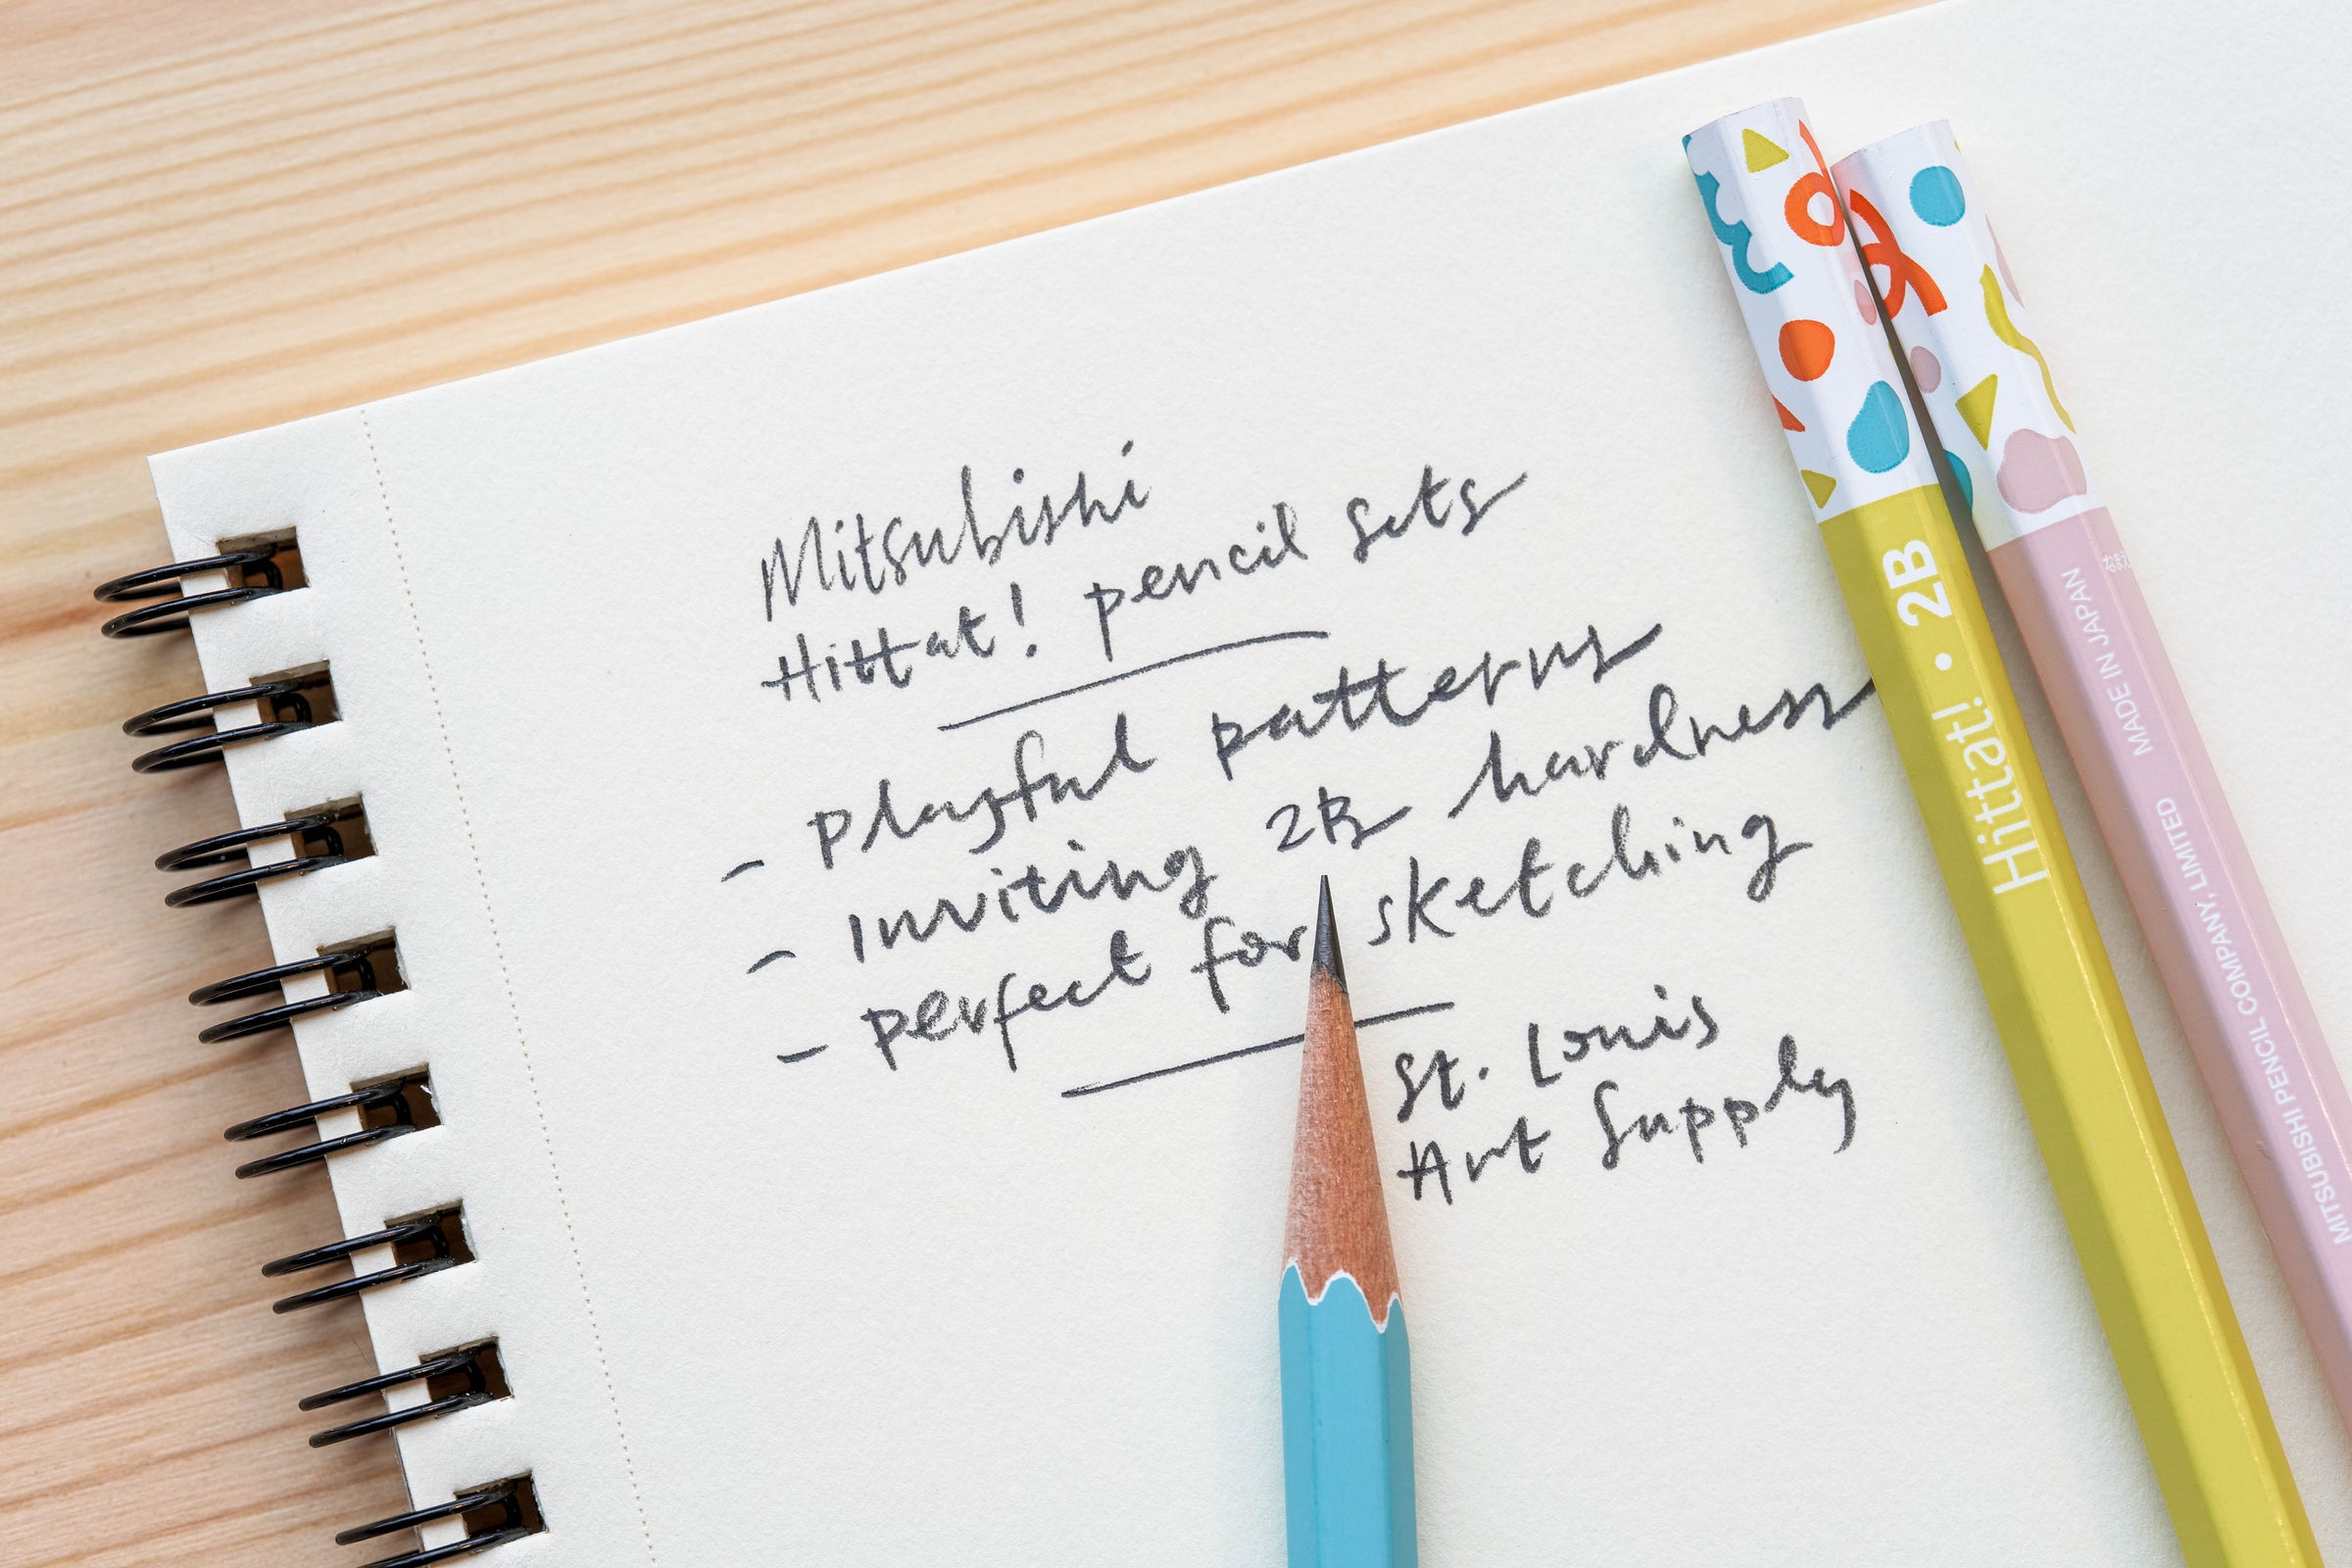 Mitsubishi
Hittat! pencil sets
- playful patterns
- inviting 2B hardness
- perfect for sketching
St. Louis
Art Supply
Hittat! • 2B
MITSUBISHI PENCIL COMPANY, LIMITED MADE IN JAPAN
なまえ